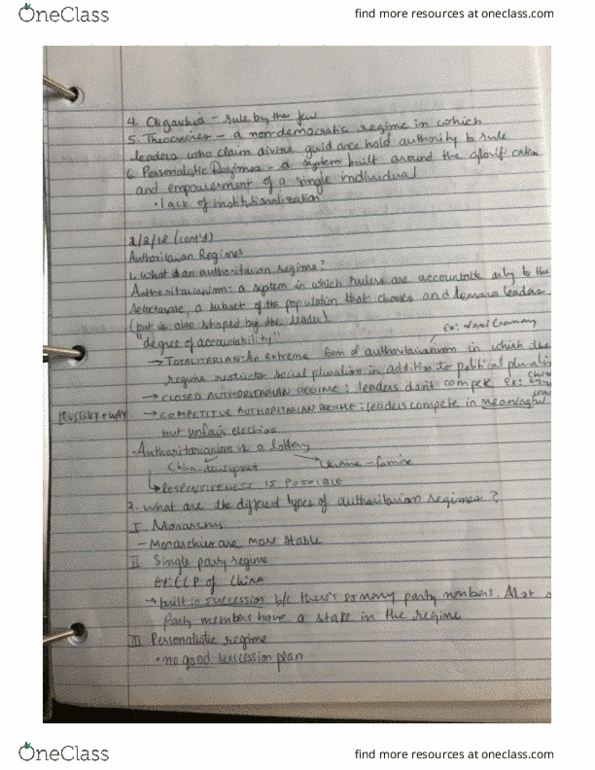 OneClass
find more resources at oneclass.com
4. Oligarchies - rule by the few
5. Theocracies - a non-democratic regime in which
leaders who claim divine guidance hold authority to rule
6. Personalistic Regimes - a system built around the
and empowerment of a single individual
• lack of institutionalization
2/2/18 (cont'd)
Authoritarian Regimes
1. What is an authoritarian regime?
Authoritarianism: a system in which rulers are accountable only to the
selectorate, a subset of the population that chooses and removes leaders
(but is also shaped by the leader).
"degree of accountability"
ex: Nazi Germany
→ TOTALITARIAN: An extreme form of authoritarianism in which the
regime restricts social pluralism in addition to political
→ CLOSED AUTHORITARIAN REGIME: leaders don't compete Ex:
LEVITSKY + WAY → COMPETITIVE AUTHORITARIAN REGIME: leaders compete in meaningful
but unfair elections
• Authoritarianism is a lottery
China-development Ukraine - famine
↳ RESPONSIVENESS IS POSSIBLE
2. what are the different types of authoritarian regimes?
I. Monarchy
- Monarchies are more stable
II Single party regime
Ex: CCP of China
→ built in succession b/c there's so many party members. A lot o
Party members have a stake in the regime
III Personalistic regime
• no good succession plan
OneClass
find more resources at oneclass.com